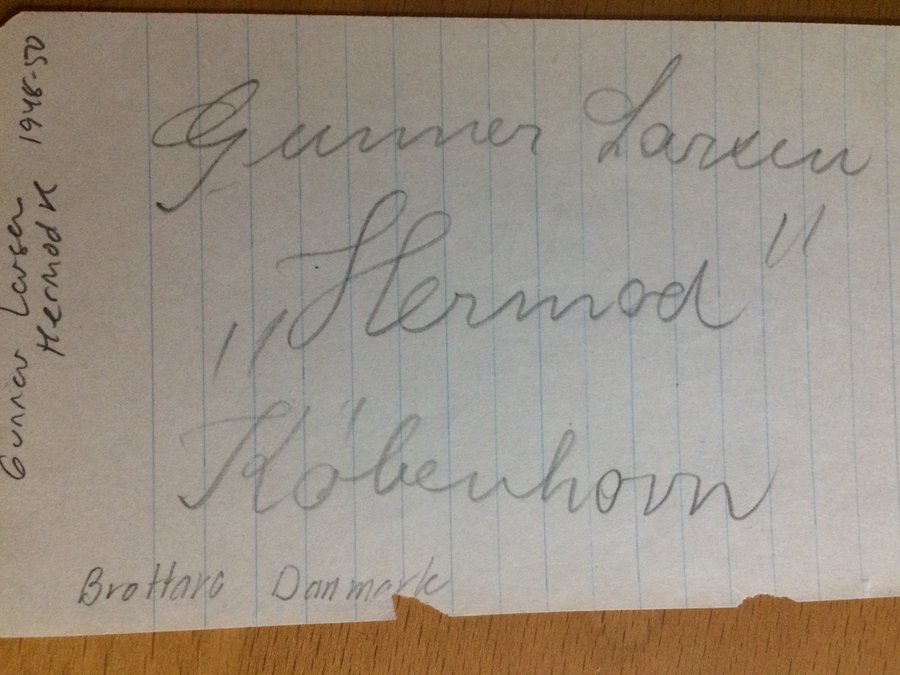 Gunner Larsen
„Hermod"
Köbenhavn
Brottare Danmark
Gunnar Larsen 1948-50
Hermod K